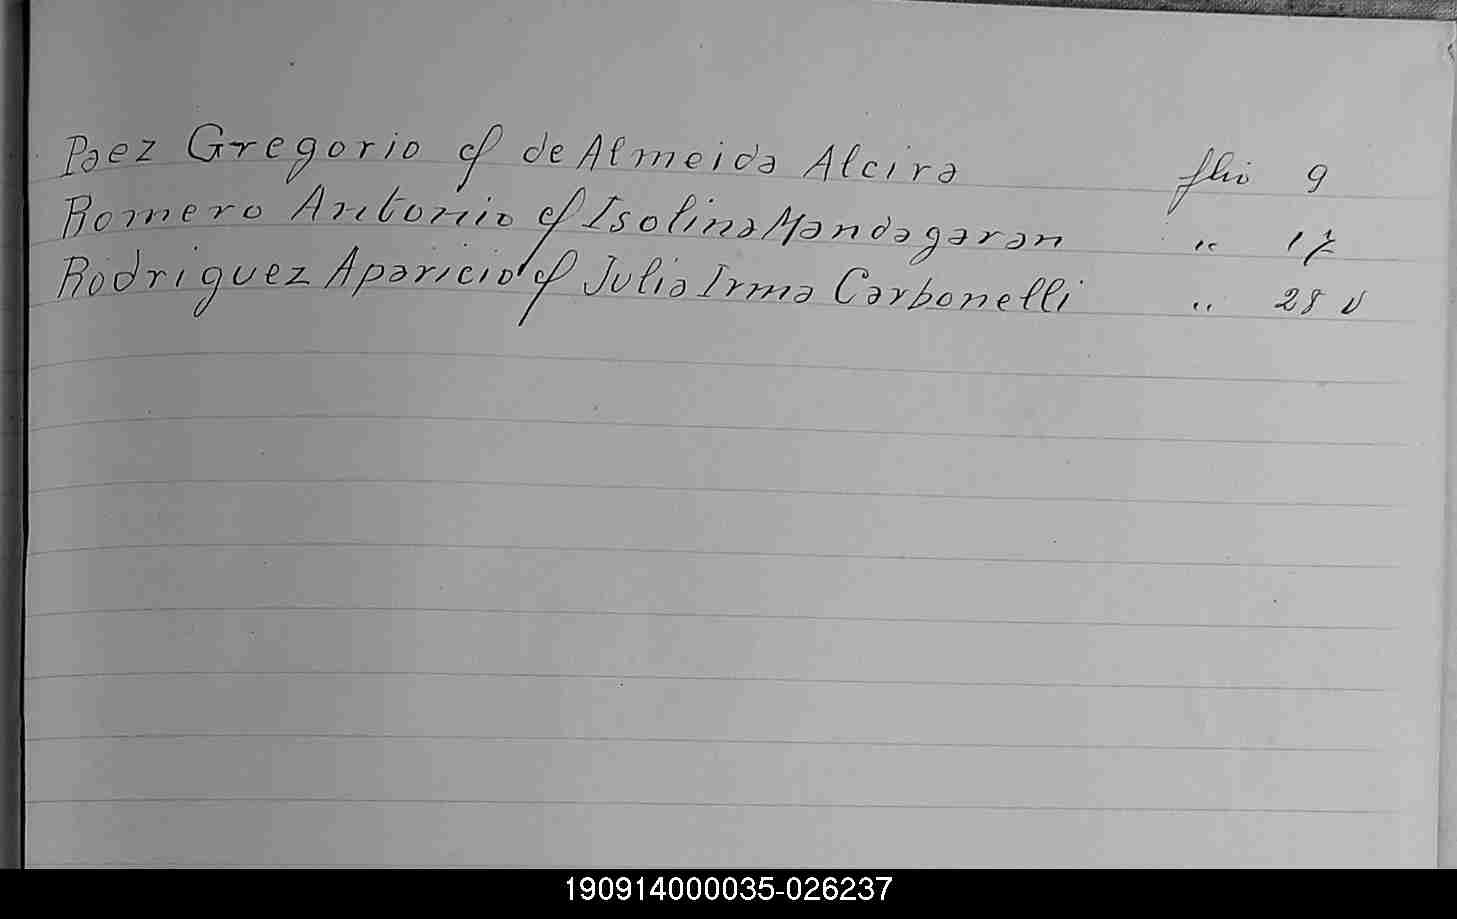 Paez Gregorio c/ de Almeida Alcira flio 9
Romero Antonio c/ Isolina Mandagaran " 17
Rodriguez Aparicio c/ Julia Irma Carbonelli " 28 v
190914000035-026237